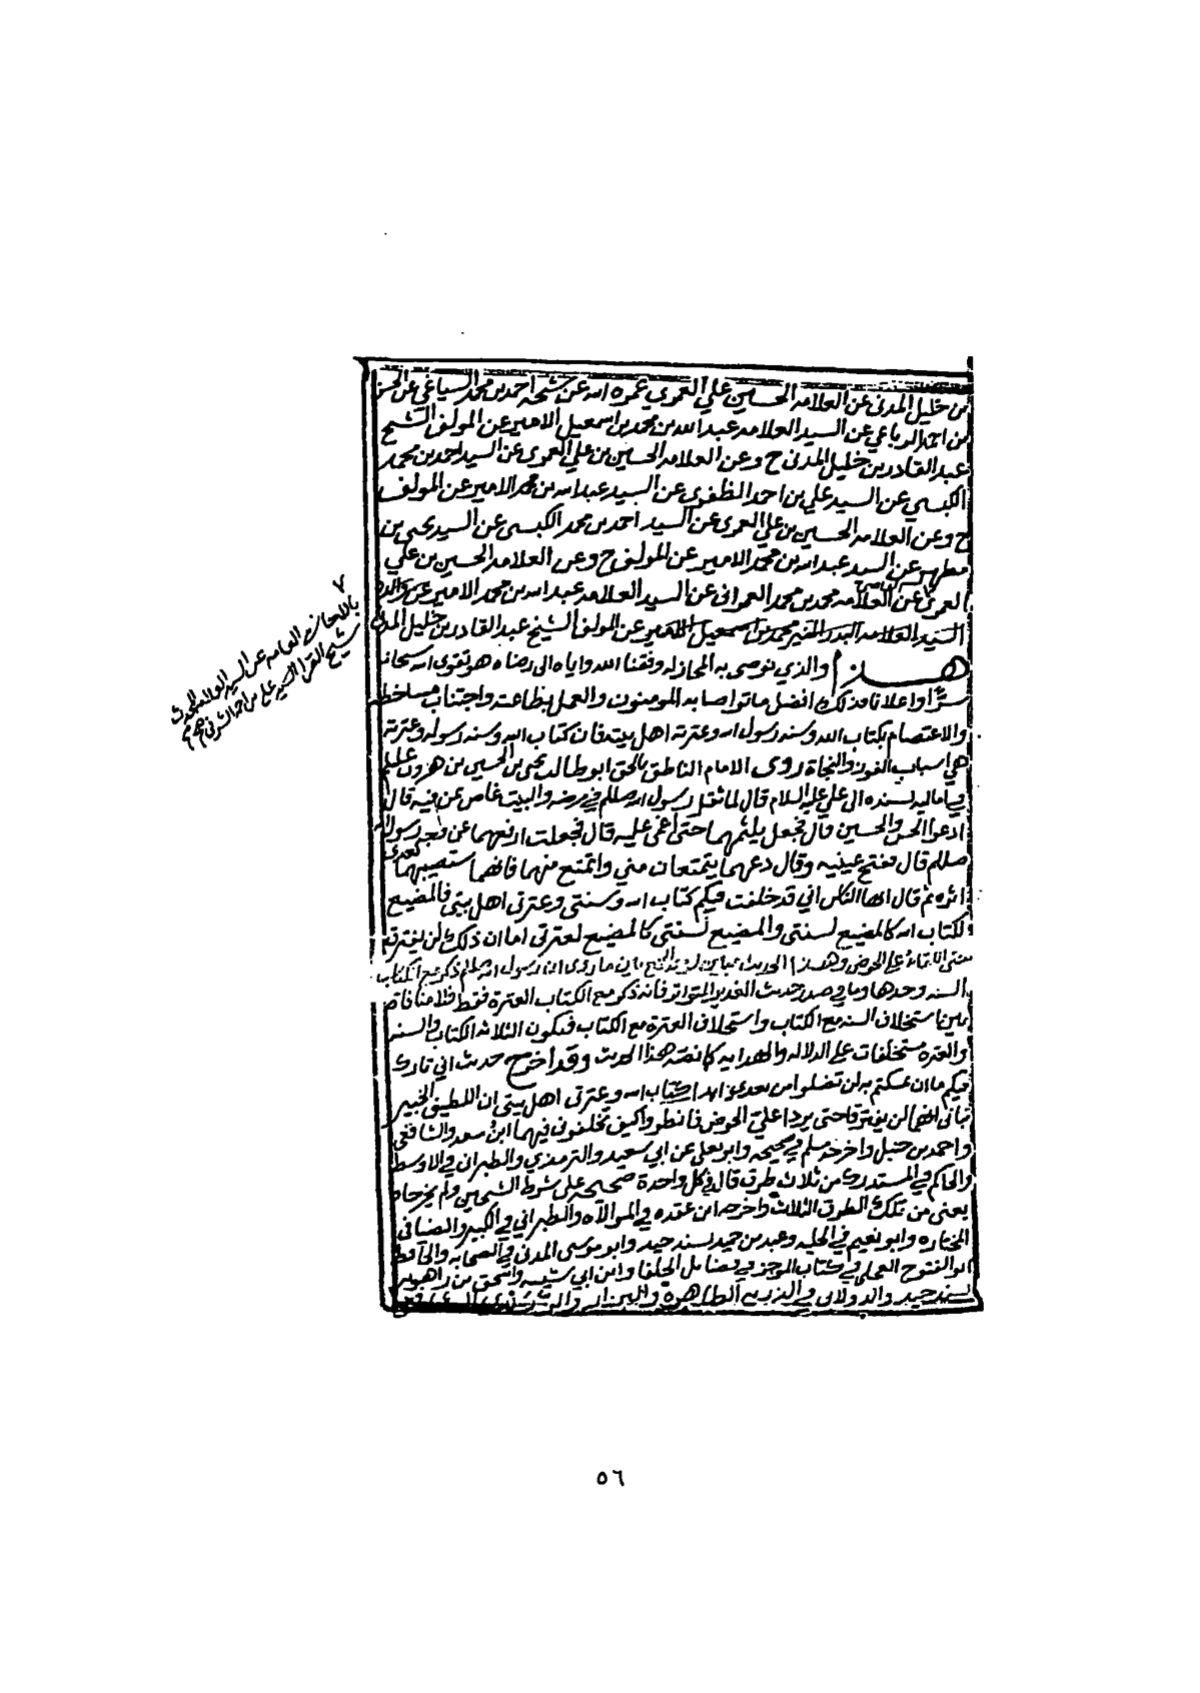 بن خليل المدني عن العلامه الحسين علي العمري عمره الله عن شيخه احمد بن محمد السياغي عن الحسن
بن احمد الرباعي عن السيد العلامه عبد الله بن محمد بن اسمعيل الامير عن المولف الشيخ
عبد القادر بن خليل المدني ح وعن العلامه الحسين بن علي العمري عن السيد احمد بن محمد
الكبسي عن السيد علي بن احمد الظفري عن السيد عبد الله بن محمد الامير عن المولف
ح وعن العلامه الحسين بن علي العمري عن السيد احمد بن محمد الكبسي عن السيد يحيى بن
مطهر عن السيد عبد الله بن محمد الامير عن المولف ح وعن العلامه الحسين بن علي
العمري عن العلامه محمد بن محمد العمراني عن السيد العلامه عبد الله بن محمد الامير عن والده
السيد العلامه البدر المنير محمد بن اسمعيل الامير عن المولف الشيخ عبد القادر بن خليل المدني
هذا والذي نوصي به المجاز له وفقنا الله واياه الى رضاه هو تقوى الله سبحانه
سرًّا واعلانا فذلك افضل ما تواصا به المومنون والعمل بطاعته واجتناب مساخطه
والاعتصام بكتاب الله وسنه رسول الله وعترته اهل بيته فان كتاب الله وسنه رسوله وعترته
هي اسباب الفوز والنجاة روى الامام الناطق بالحق ابو طالب يحيى بن الحسين بن هرون عليلم
في اماليه بسنده الى علي عليه السلام قال لما ثقل رسول الله صللم في مرضه والبيت غاص عن فيه قال
ادعوا الحسن والحسين قال فجعل يلثمهما حتى اغمي عليه قال فجعلت ارفعهما عن وجه رسول الله
صللم قال ففتح عينيه وقال دعهما يتمتعان مني واتمتع منهما فانهما ستصيبهما بعدي
اثره ثم قال ايها الناس اني قد خلفت فيكم كتاب الله وسنتي وعترتي اهل بيتي فالمضيع
لكتاب الله كالمضيع لسنتي والمضيع لسنتي كالمضيع لعترتي اما ان ذلك لن يفترقا
حتى اللقاء على الحوض وهذا الحديث ما روي ان رسول الله صللم ذكر مع الكتاب
السنه وحدها وما في صدر حديث الغدير المتواتر فانه ذكر مع الكتاب العترة فقط فلا منافاة
بين استخلاف السنه مع الكتاب واستخلاف العترة مع الكتاب فيكون الثلاثه الكتاب والسنه
والعترة مستخلفات على الدلاله والهدايه كما نصه هذا الحديث وقد اخرج حديث اني تارك
فيكم ما ان تمسكتم به لن تضلوا من بعدي ابدا كتاب الله وعترتي اهل بيتي ان اللطيف الخبير
نباني انهما لن يفترقا حتى يردا عليّ الحوض فانظروا كيف تخلفوني فيهما ابن سعد والشافعي
واحمد بن حنبل واخرجه مسلم في صحيحه وابو يعلى عن ابي سعيد والترمذي والطبراني في الاوسط
والحاكم في المستدرك من ثلاث طرق قال في كل واحدة صحيح على شرط الشيخين ولم يخرجاه
يعني من تلك الطرق الثلاث واخرجه ابن عقده في الموالاة والطبراني في الكبير والضيا في
المختاره وابو نعيم في الحليه وعبد بن حميد بسند جيد وابو موسى المدني في الصحابه والحافظ
ابو الفتوح العجلي في كتاب الموجز في فضايل الخلفا وابن ابي شيبه واسحق بن راهويه
بسند جيد والدولابي في الذريه الطاهرة والبزار
٧
بالاجازه العامه عن السيد العلامه المحدث
شيخ القرا السيد علي بن احمد الشرفي
٥٦